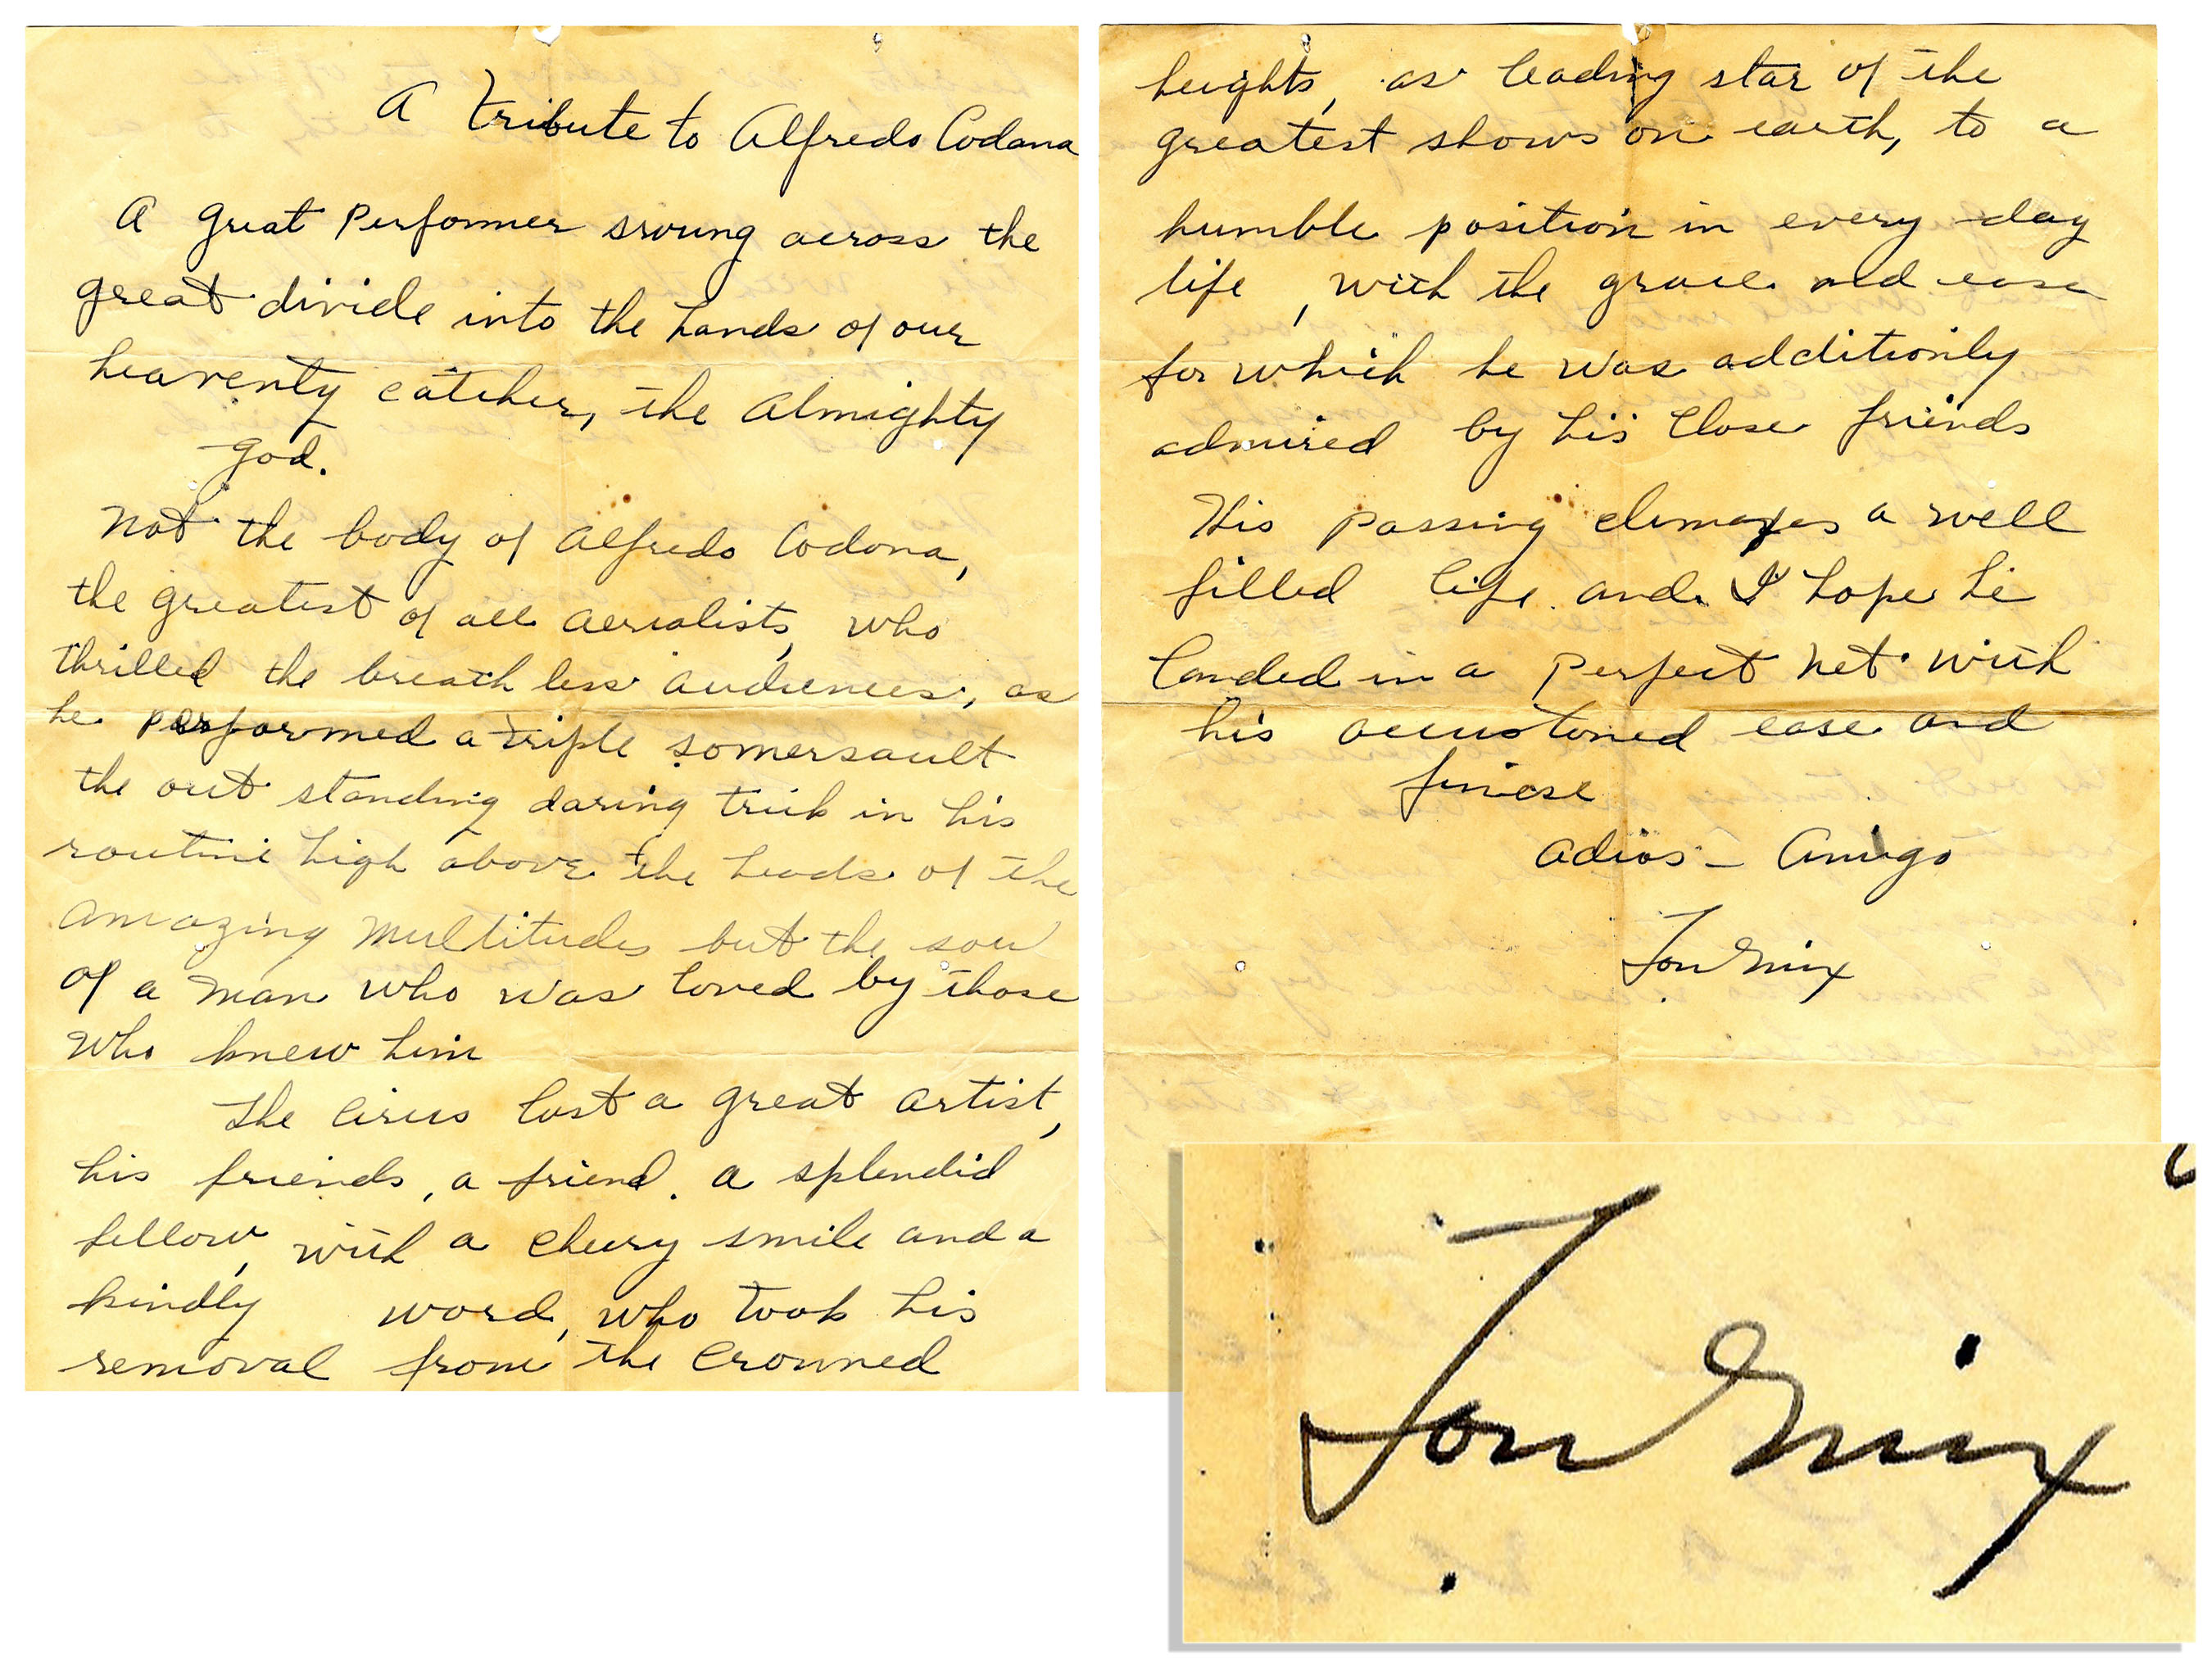 A Tribute to Alfredo Codana
A great Performer swung across the
great divide into the hands of our
heavenly catcher, the Almighty
God.
Not the body of Alfredo Codona,
the greatest of all aerialists, who
thrilled the breath less audiences, as
he performed a triple somersault
the out standing daring trick in his
routine high above the heads of the
amazing multitudes but the soul
of a man who was loved by those
who knew him
The circus lost a great artist,
his friends, a friend. a splendid
fellow, with a cheery smile and a
kindly word, who took his
removal from the crowned
heights, as leading star of the
greatest shows on earth, to a
humble position in every day
life, with the grace and ease
for which he was additionly
admired by his close friends
His passing climaxes a well
filled life and I hope he
landed in a perfect net with
his accustomed ease and
finiese
Adios - Amigo
Tom Mix
Tom Mix